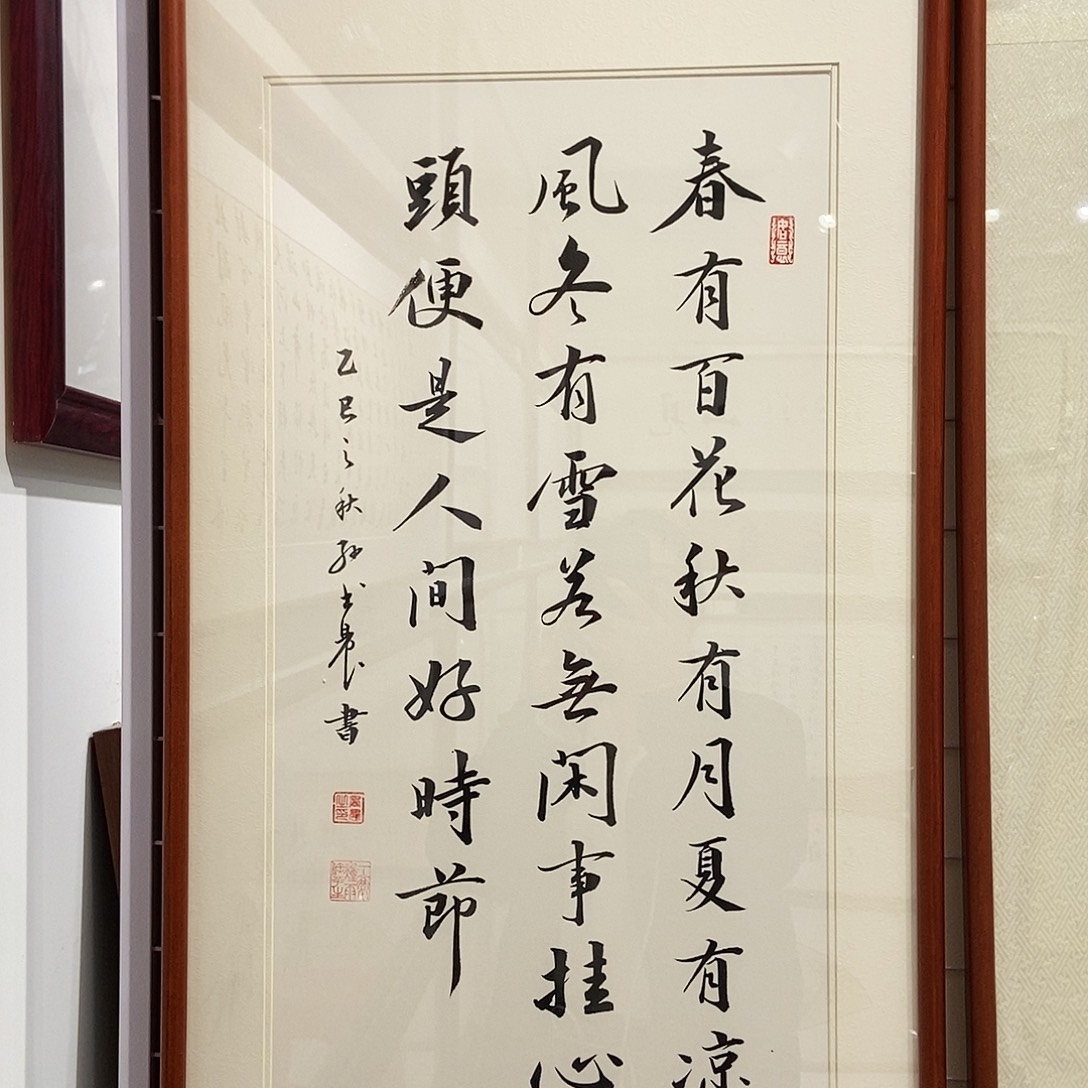 春有百花秋有月夏有涼
風冬有雪若無閑事挂心
頭便是人间好時節
乙巳之秋孙士農书